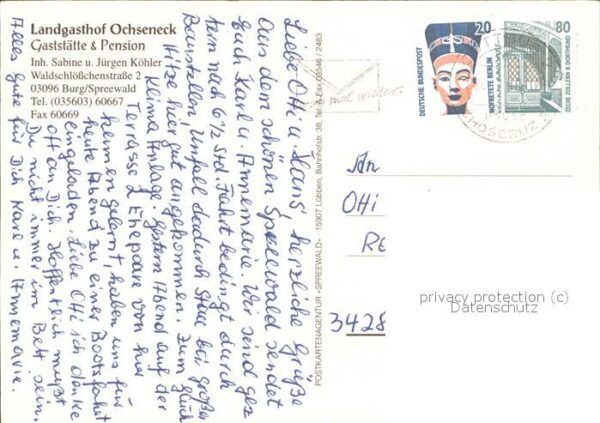 Landgasthof Ochseneck
Gaststätte & Pension
Inh. Sabine u. Jürgen Köhler
Waldschlößchenstraße 2
03096 Burg/Spreewald
Tel. (035603) 60667
Fax 60669
Liebe Otti u. Hans! herzliche Grüße
Aus dem schönen Spreewald sendet
Euch Karl u. Annemarie. Wir sind ges
tern nach 6½ Std Fahrt bedingt durch
Baustellen, Unfall dadurch Stau bei großer
Hitze hier gut angekommen. Zum Glück
Klima Anlage. Gestern Abend auf der
Terrasse 2 Ehepaare von hier
kennen gelernt, haben uns für
heute Abend zu einer Bootsfahrt
eingeladen. Liebe Otti ich denke
oft an Dich. Hoffentlich mußt
Du nicht immer im Bett sein.
Alles gute für Dich Karl u. Annemarie.
POSTKARTENAGENTUR »SPREEWALD« · 15907 LÜBBEN, Bahnhofstr. 38, Tel. & Fax 03546 / 2483
mal wieder.
DEUTSCHE BUNDESPOST
20
NOFRETETE BERLIN
80
ZECHE ZOLLERN II DORTMUND
An
Otti
3428
privacy protection (c)
Datenschutz